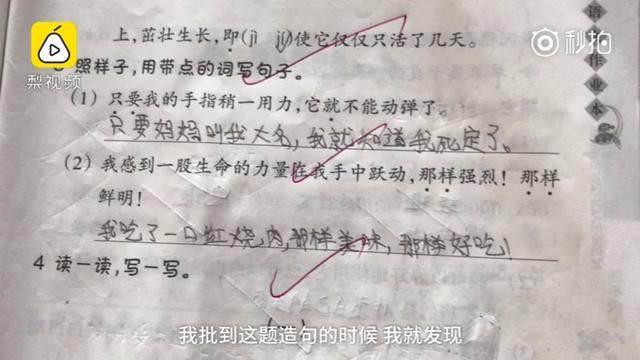 梨视频
秒拍
语
作
业
本
上,茁壮生长,即(jì jí)使它仅仅只活了几天。
照样子,用带点的词写句子。
(1) 只要我的手指稍一用力,它就不能动弹了。
只要妈妈叫我大名,我就知道我死定了。
(2) 我感到一股生命的力量在我手中跃动,那样强烈!那样
鲜明!
我吃了一口红烧肉,那样美味,那样好吃!
4 读一读,写一写。
我批到这题造句的时候 我就发现